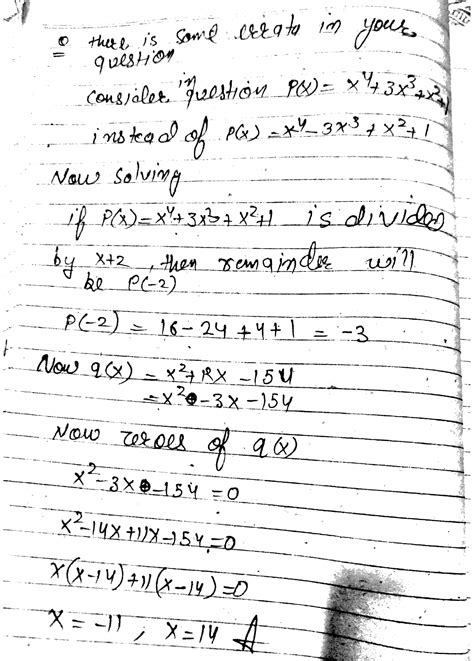 there is some errata in your
question
consider in question P(x) = x⁴+3x³+x²+1
instead of P(x) = x⁴-3x³+x²+1
Now solving
if P(x) = x⁴+3x³+x²+1 is divided
by x+2, then remainder will
be P(-2)
P(-2) = 16-24+4+1 = -3
Now q(x) = x²+ x -154
= x²-3x-154
Now zeroes of q(x)
x²-3x-154 = 0
x²-14x+11x-154 = 0
x(x-14)+11(x-14) = 0
x = -11, x = 14